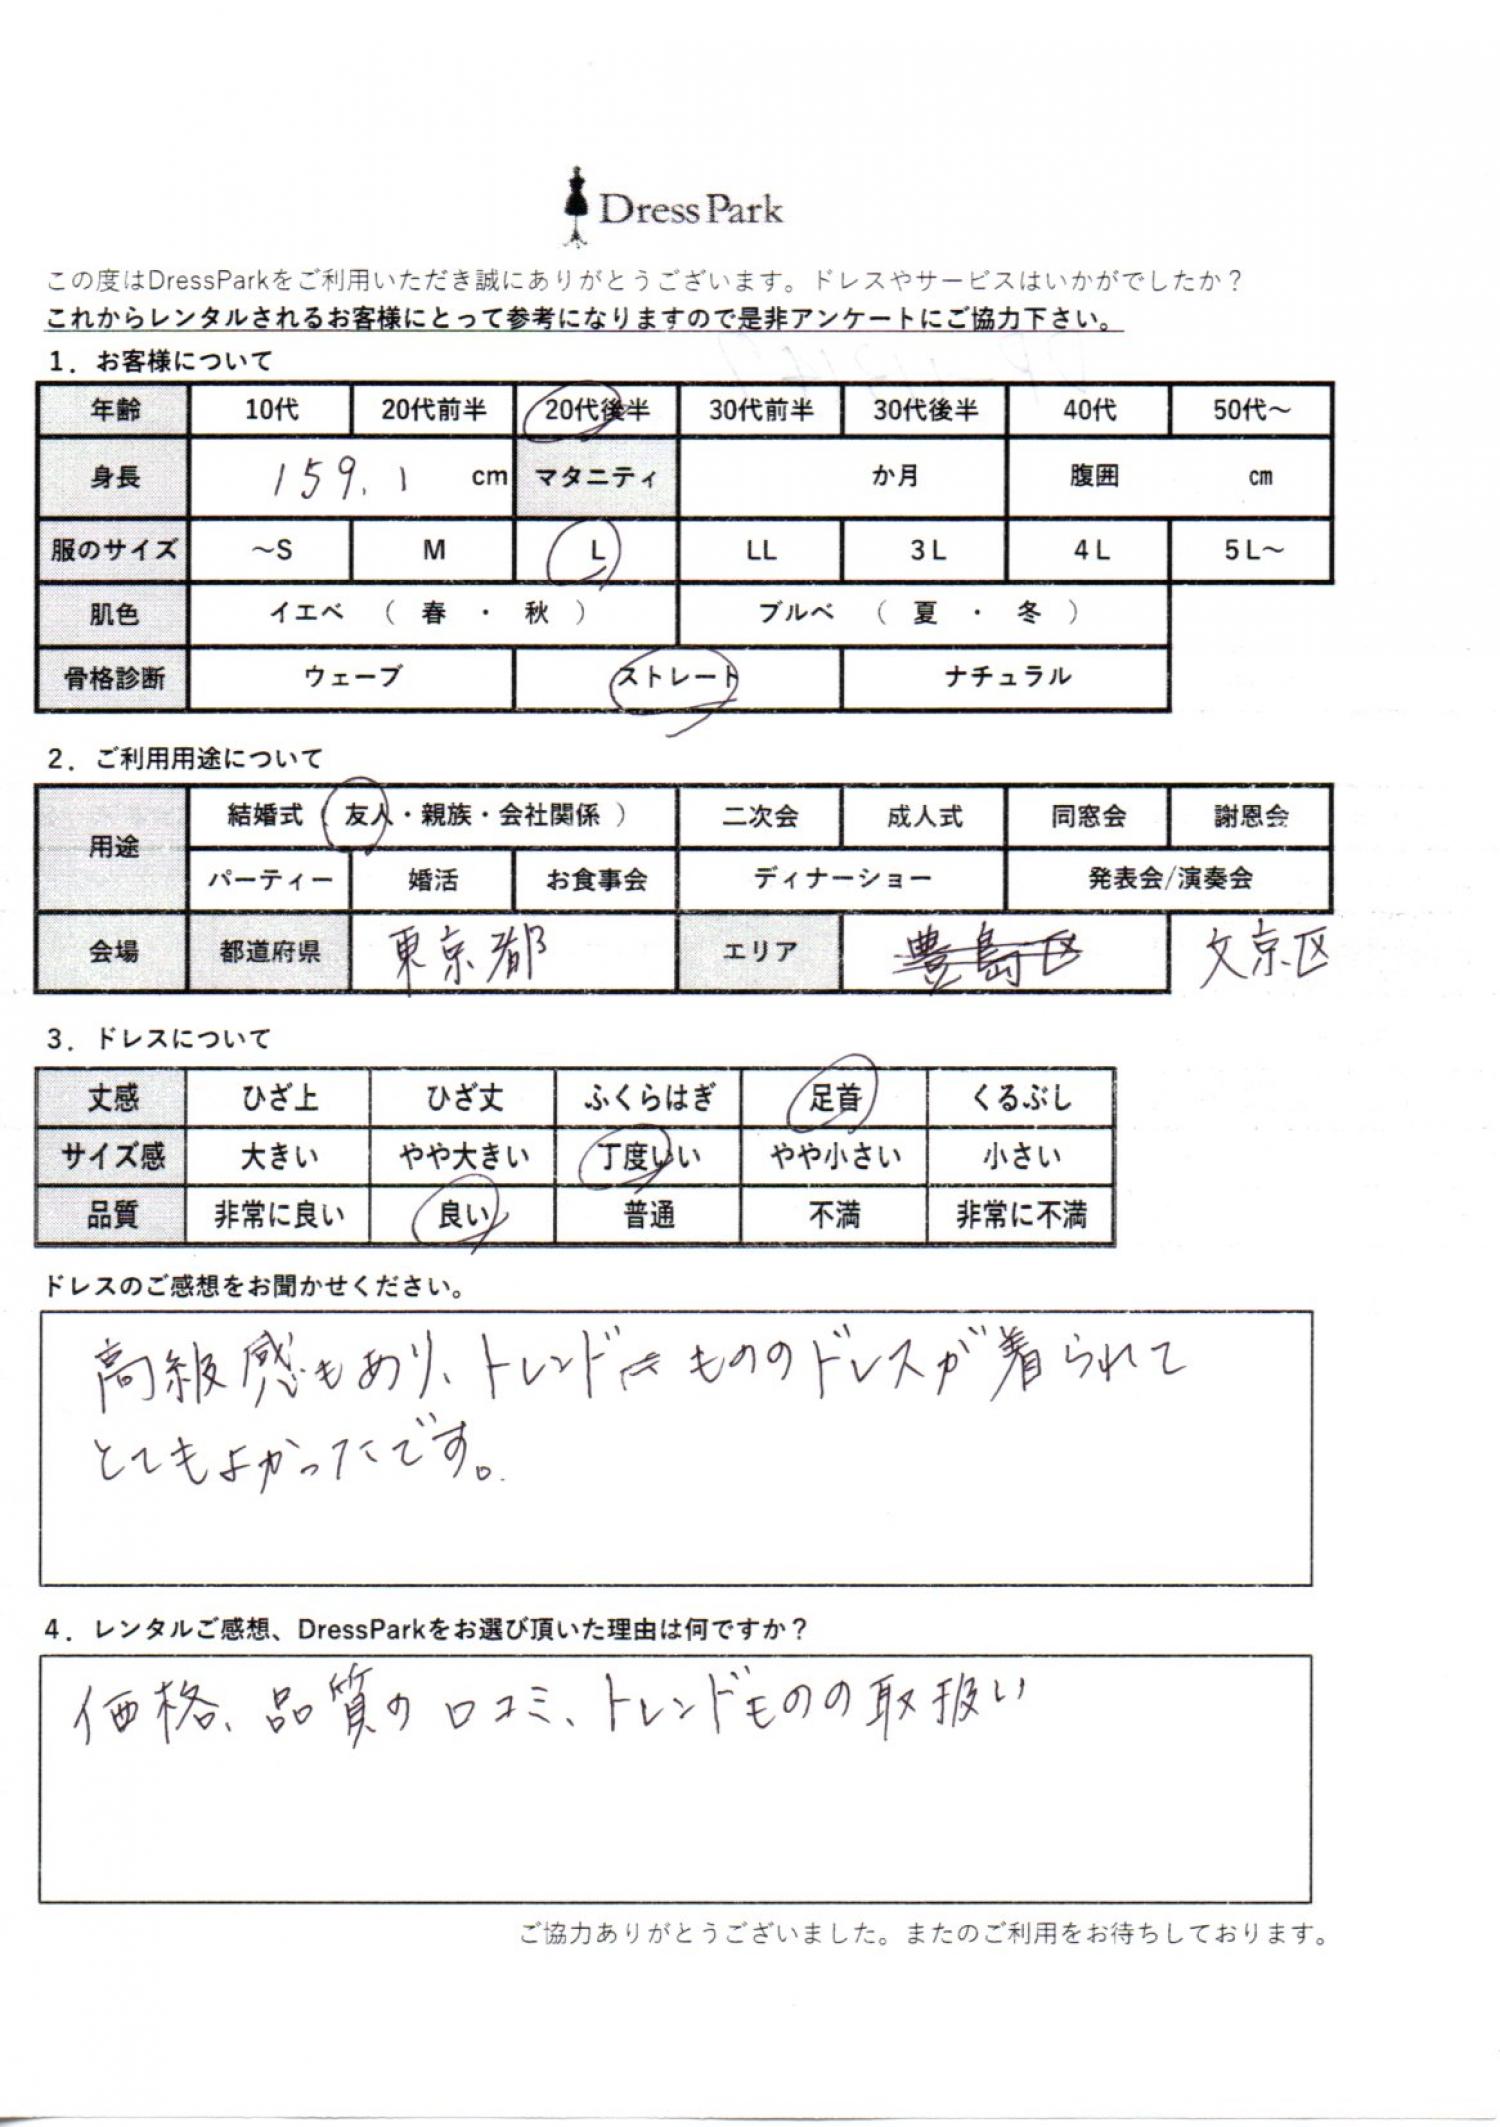 Dress Park
この度はDressParkをご利用いただき誠にありがとうございます。ドレスやサービスはいかがでしたか？
これからレンタルされるお客様にとって参考になりますので是非アンケートにご協力下さい。
1．お客様について
年齢 10代 20代前半 20代後半 30代前半 30代後半 40代 50代～
身長 159.1 cm マタニティ か月 腹囲 ㎝
服のサイズ ～S M L LL 3L 4L 5L～
肌色 イエベ （ 春 ・ 秋 ） ブルベ （ 夏 ・ 冬 ）
骨格診断 ウェーブ ストレート ナチュラル
2．ご利用用途について
用途 結婚式（ 友人・親族・会社関係 ） 二次会 成人式 同窓会 謝恩会
パーティー 婚活 お食事会 ディナーショー 発表会/演奏会
会場 都道府県 東京都 エリア 豊島区 文京区
3．ドレスについて
丈感 ひざ上 ひざ丈 ふくらはぎ 足首 くるぶし
サイズ感 大きい やや大きい 丁度いい やや小さい 小さい
品質 非常に良い 良い 普通 不満 非常に不満
ドレスのご感想をお聞かせください。
高級感もあり、トレンドもののドレスが着られて
とてもよかったです。
4．レンタルご感想、DressParkをお選び頂いた理由は何ですか？
価格、品質の口コミ、トレンドものの取扱い
ご協力ありがとうございました。またのご利用をお待ちしております。